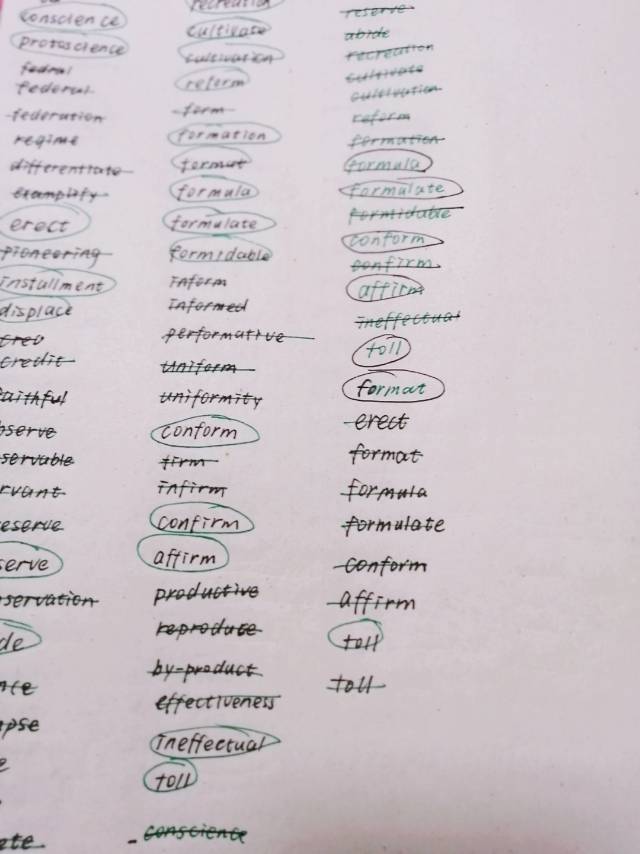 conscience
protoscience
fedral
federal
federation
regime
differentiate
examplify
erect
pioneering
installment
displace
credit
recreation
cultivate
cultivation
reform
form
formation
format
formula
formulate
formidable
inform
informed
performative
uniform
uniformity
conform
firm
infirm
confirm
affirm
productive
reproduce
by-product
effectiveness
ineffectual
toll
conscience
reserve
abide
recreation
cultivate
cultivation
reform
formation
formula
formulate
formidable
conform
confirm
affirm
ineffectual
toll
format
erect
format
formula
formulate
conform
affirm
toll
toll